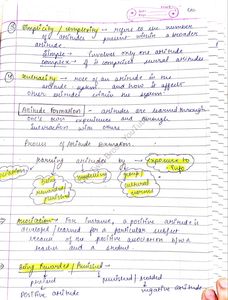 Simplicity / complexity - refers to the number
of attitudes present within a broader
attitude
Simple - involves only one attitude
complex - if it comprised several attitudes
Centrality - role of an attitude in the
attitude system and how it affects
other attitudes within the system
Attitude Formation - attitudes are learned through
one's own experiences and through
interaction with others
Process of Attitude formation
learning attitudes by → exposure to
info
Being
rewarded/
punished
modelling
group/
cultural
norms
Association - For instance, a positive attitude is
developed/learned for a particular subject
because of the positive association b/w a
teacher and a student
Being Rewarded / Punished -
praised
punished/scolded
positive attitude
negative attitude